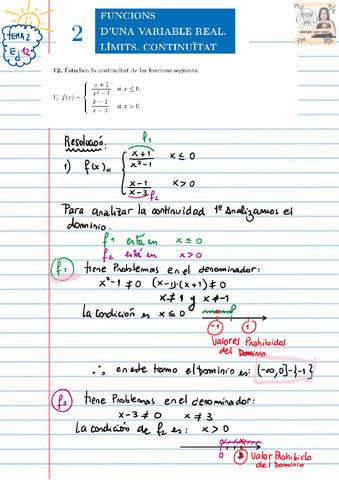 TEMA 2
Ej 12
2
FUNCIONS
D'UNA VARIABLE REAL.
LÍMITS. CONTINUÏTAT
12. Estudieu la continuïtat de les funcions següents:
1) f(x) = { x + 1 / x² − 1 si x ≤ 0,
x − 1 / x − 3 si x > 0.
Resolución:
f1
1) f(x)= { x+1 / x²-1 x ≤ 0
x-1 / x-3 x > 0
f2
Para analizar la continuidad 1º Analizamos el
dominio.
f1 está en x ≤ 0
f2 está en x > 0
f1 tiene Problemas en el denominador:
x²-1 ≠ 0 (x-1)·(x+1) ≠ 0
x ≠ 1 y x ≠ -1
la condición es x ≤ 0
-1 1
Valores Prohibidos
del Dominio.
∴ en este tramo el Dominio es: (-∞,0]-{-1}
f2 tiene Problemas en el denominador:
x-3 ≠ 0 x ≠ 3
La condición de f2 es: x > 0
0 3 Valor Prohibido
del Dominio